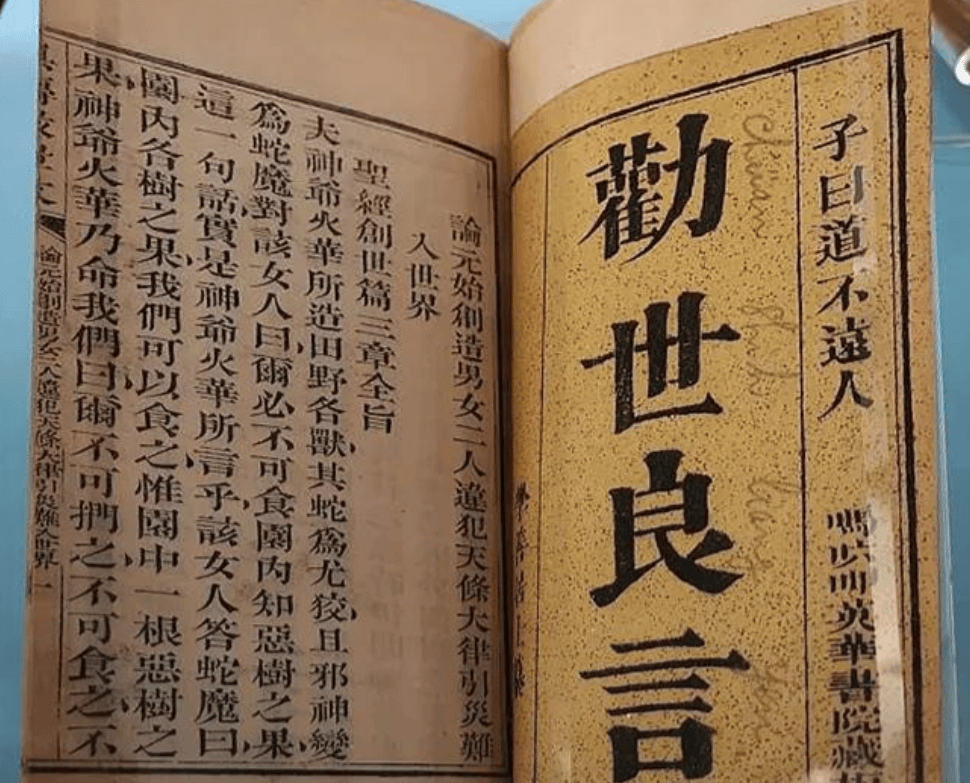 子曰道不遠人
英華書院藏
勸世良言
liang
論元始創造男女二人違犯天條大律引災難
入世界
聖經創世篇三章全旨
夫神爺火華所造田野各獸其蛇爲尤狡且邪神變
爲蛇魔對該女人曰爾必不可食園內知惡樹之果
這一句話實是神爺火華所言乎該女人答蛇魔曰
園內各樹之果我們可以食之惟園中一根惡樹之
果神爺火華乃命我們曰爾不可捫之不可食之不
論元始創造男女二人違犯天條大律引災難入世界 一